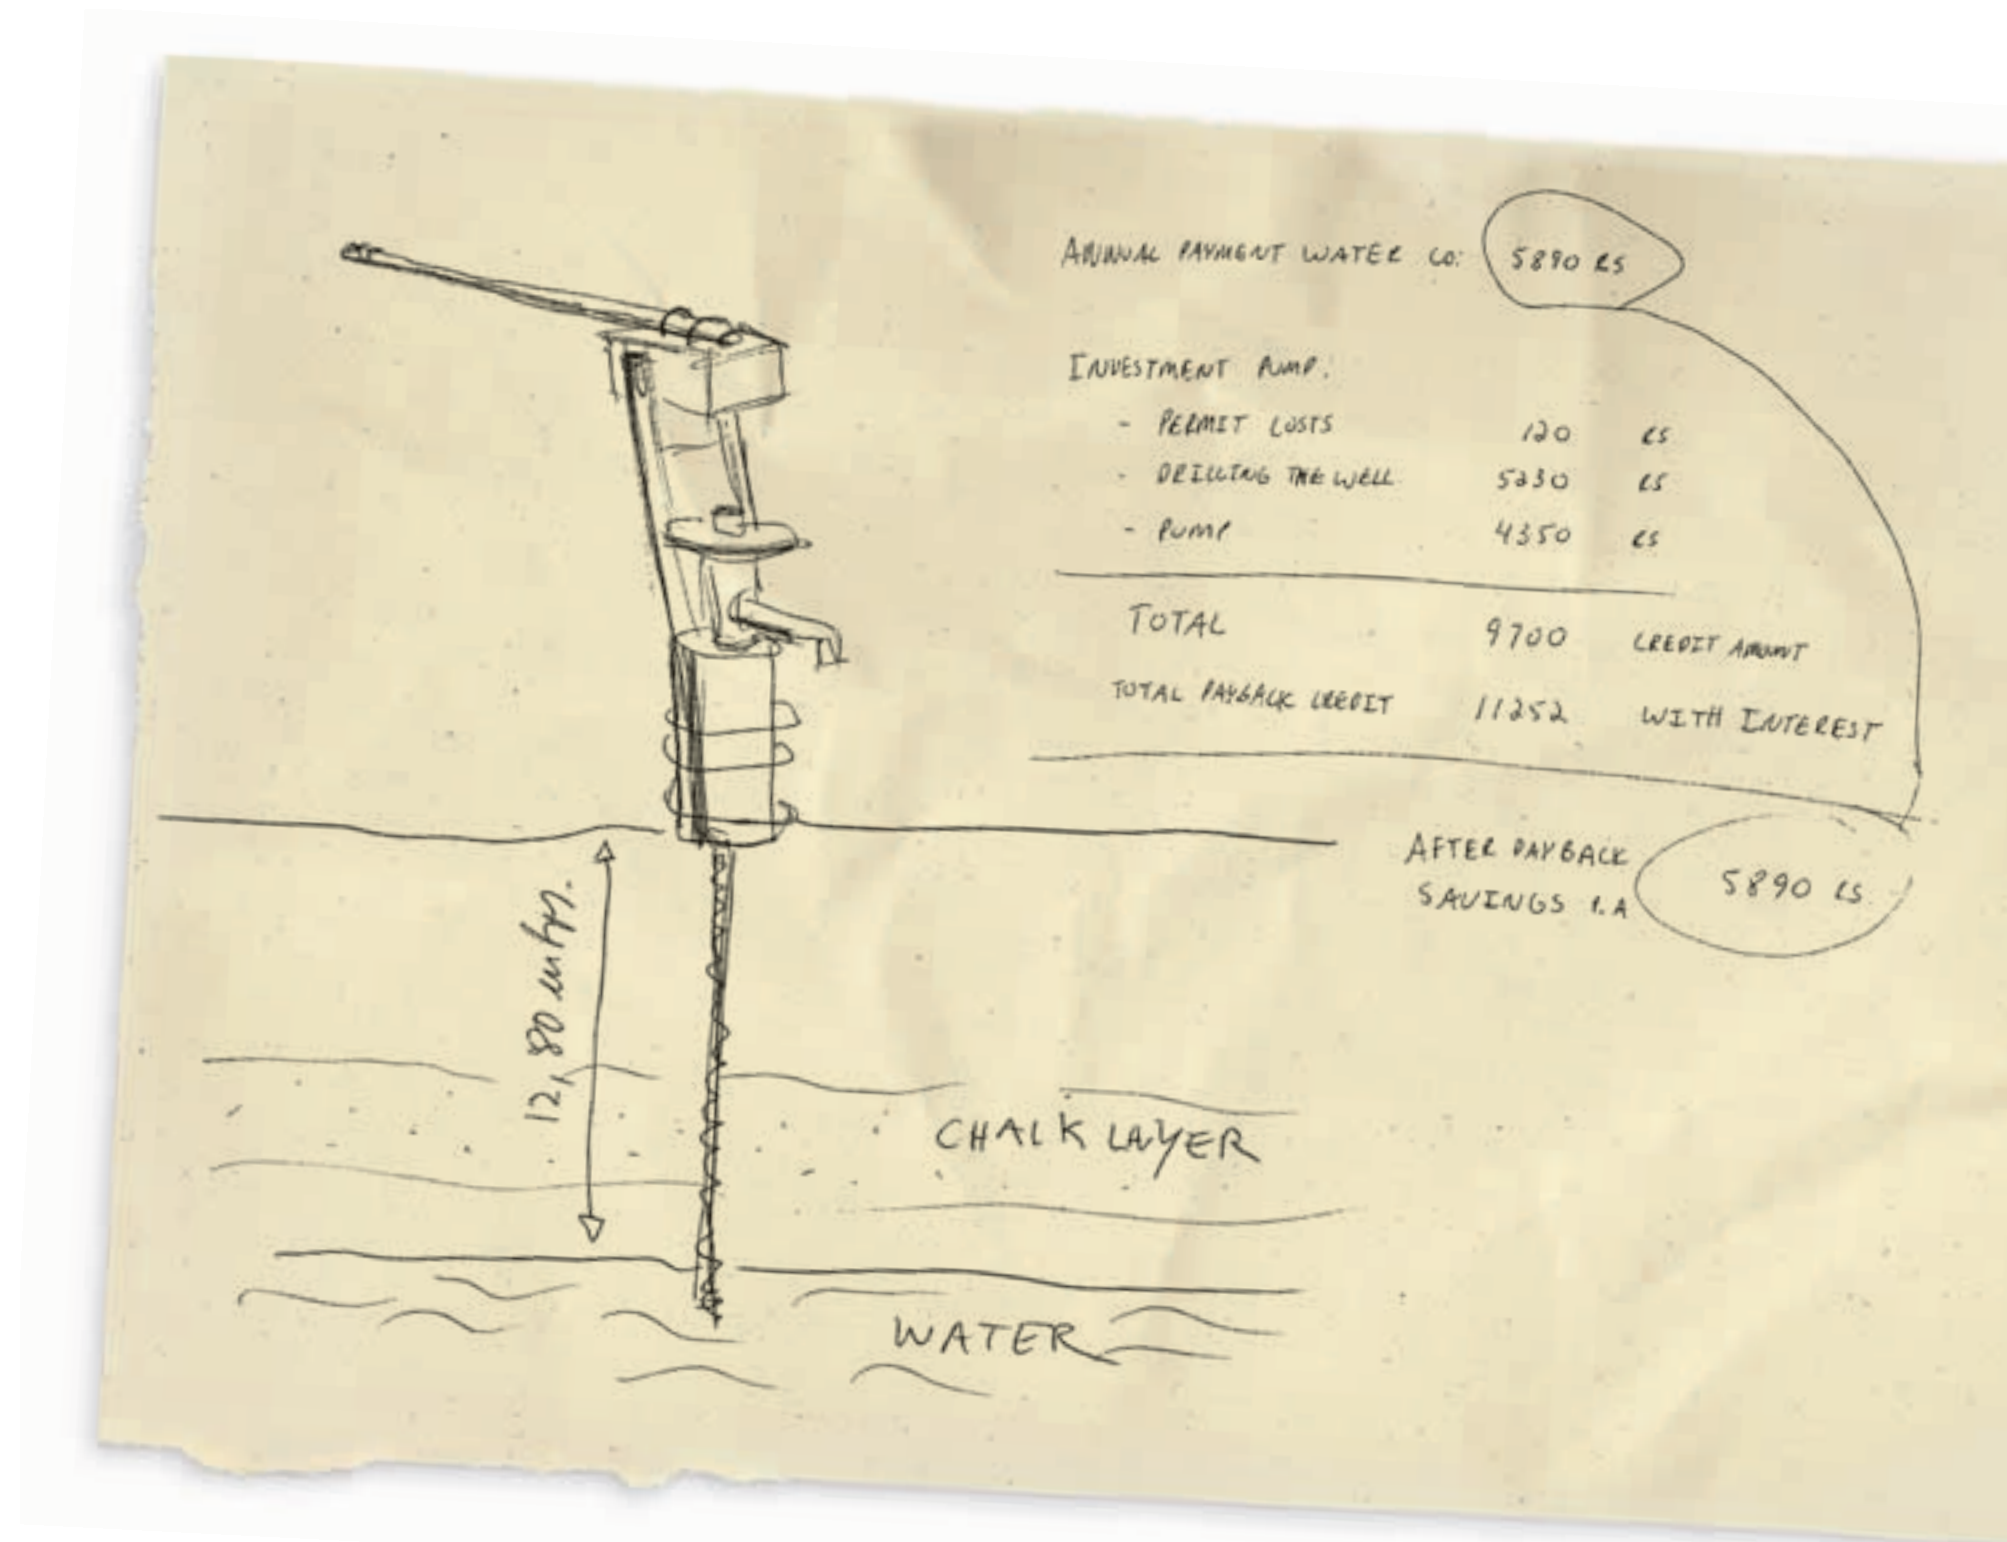 ANNUAL PAYMENT WATER CO: 5890 RS
INVESTMENT PUMP:
- PERMIT COSTS 120 RS
- DRILLING THE WELL 5230 RS
- PUMP 4350 RS
TOTAL 9700 CREDIT AMOUNT
TOTAL PAYBACK CREDIT 11252 WITH INTEREST
AFTER PAYBACK
SAVINGS P.A 5890 RS
12,80
CHALK LAYER
WATER